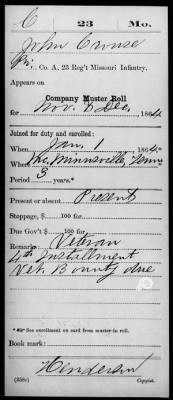 C 23 Mo.
John Crouse
Pvt., Co. A, 23 Reg't Missouri Infantry.
Appears on
Company Muster Roll
for Nov. & Dec., 1864
Joined for duty and enrolled:
When Jan. 1, 1864.
Where Mc Minnville, Tenn
Period 3 years.*
Present or absent Present
Stoppage, $ 100 for
Due Gov't $ 100 for
Remarks: Veteran
4th Installment
Vet. Bounty due
*See enrollment on card from muster-in roll.
Book mark:
Henderson
(358c) Copyist.